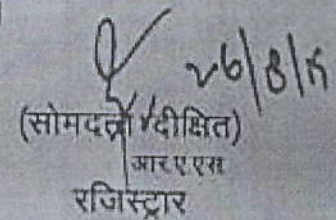 26/8/15
(सोमदत्त दीक्षित)
आर ए एस
रजिस्ट्रार